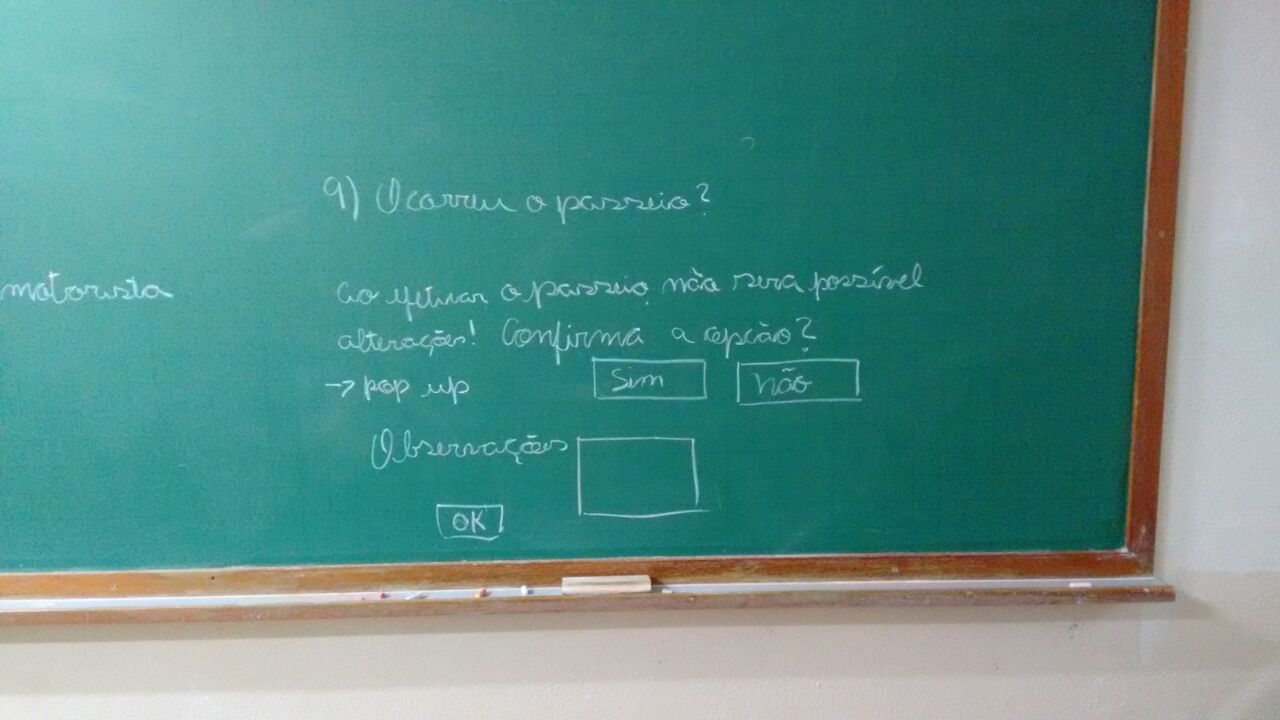 9) Ocorreu o passeio?
motorista
ao efetivar o passeio não sera possível
alterações! Confirma a opção?
→ pop up
Sim
não
Observações
OK